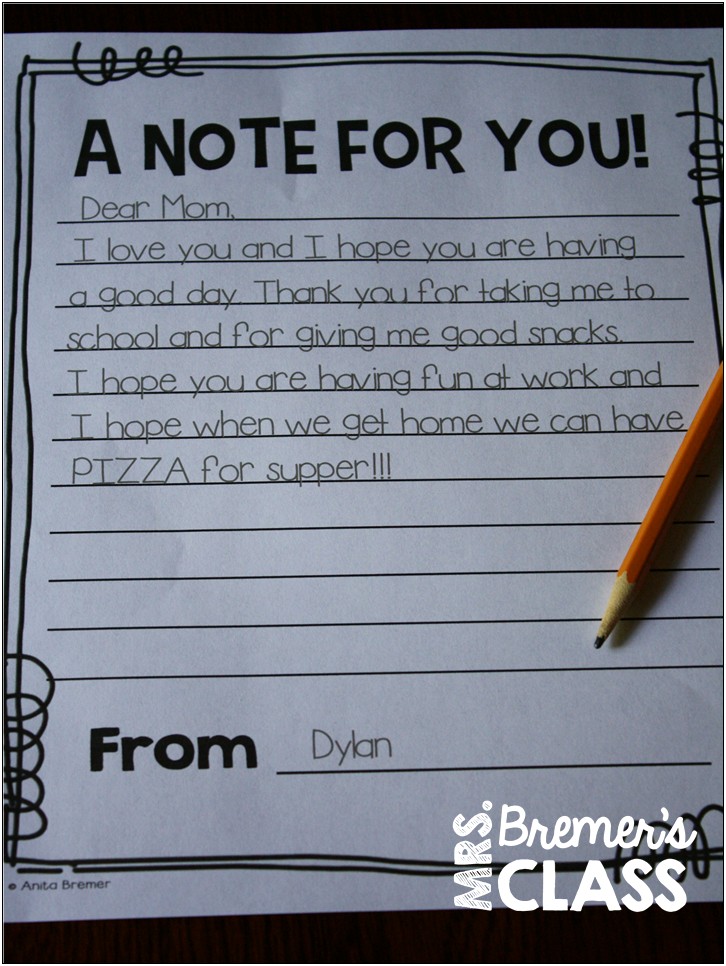 A NOTE FOR YOU!
Dear Mom,
I love you and I hope you are having
a good day. Thank you for taking me to
school and for giving me good snacks.
I hope you are having fun at work and
I hope when we get home we can have
PIZZA for supper!!!
From Dylan
MRS. Bremer's CLASS
© Anita Bremer